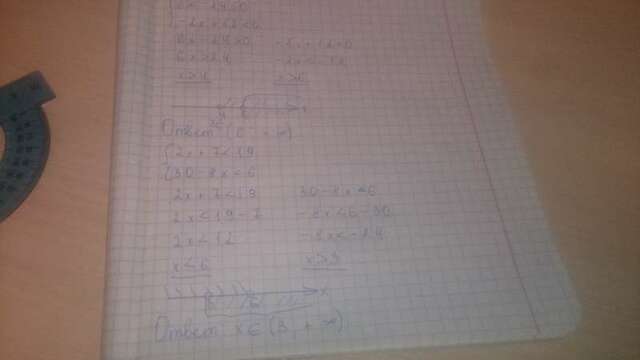 6x - 24 > 0
-2x + 12 < 0
6x - 24 > 0 -2x + 12 < 0
6x > 24 -2x < -12
x > 4 x > 6
Ответ (6; + ∞)
{2x + 7 < 19
{30 - 8x < 6
2x + 7 < 19 30 - 8x < 6
2x < 19 - 7 -8x < 6 - 30
2x < 12 -8x < -24
x < 6 x > 3
Ответ: x ∈ (3, + ∞)